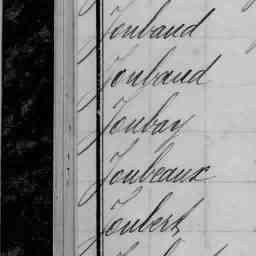 Joubaud
Joubaud
Joubay
Joubeaux
Joubert